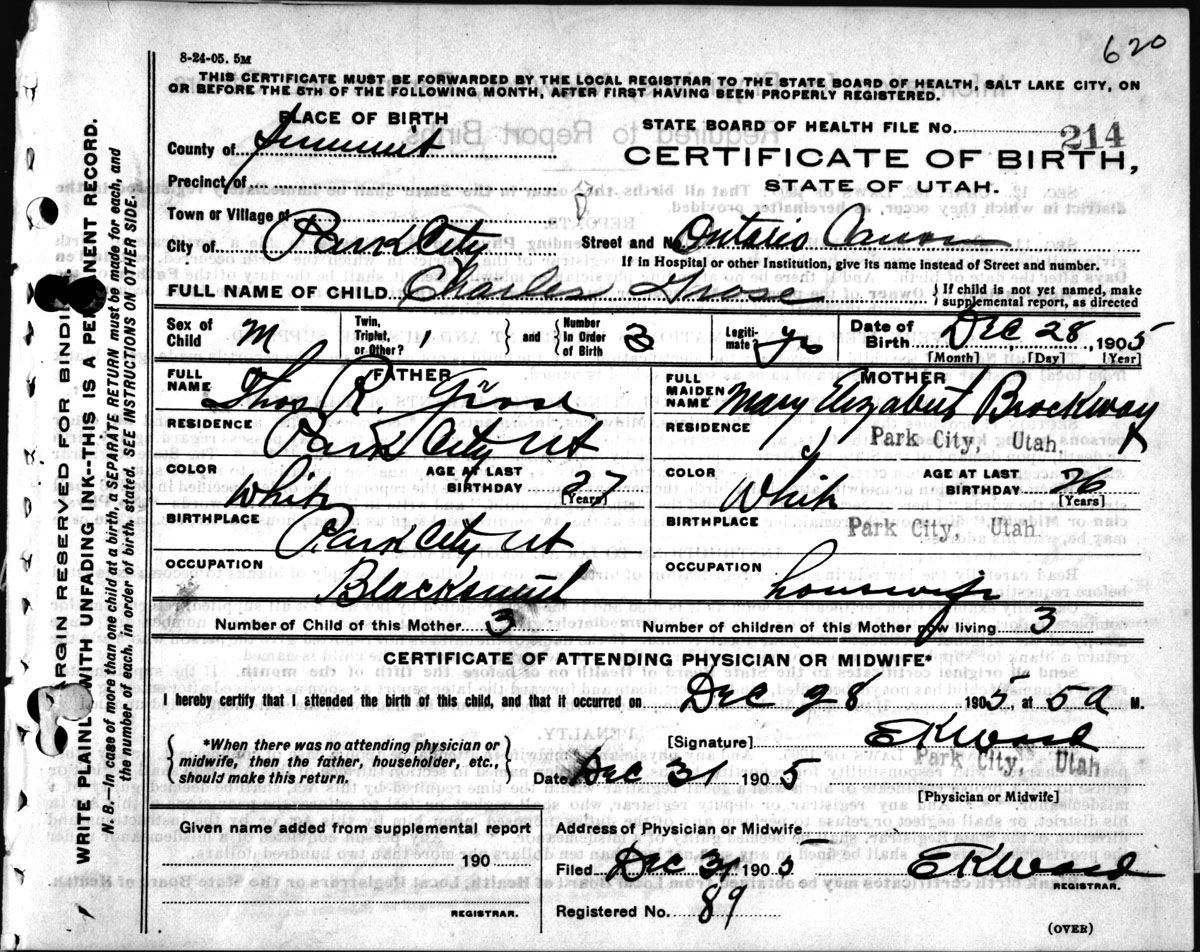 620
8-24-05. 5M
THIS CERTIFICATE MUST BE FORWARDED BY THE LOCAL REGISTRAR TO THE STATE BOARD OF HEALTH, SALT LAKE CITY, ON
OR BEFORE THE 5TH OF THE FOLLOWING MONTH, AFTER FIRST HAVING BEEN PROPERLY REGISTERED.
PLACE OF BIRTH
STATE BOARD OF HEALTH FILE NO. 214
County of Summit
CERTIFICATE OF BIRTH,
Precinct of
STATE OF UTAH.
Town or Village of
City of Park City Street and No. Ontario
If in Hospital or other Institution, give its name instead of Street and number.
FULL NAME OF CHILD Charles Grose { If child is not yet named, make supplemental report, as directed
Sex of Child M Twin, Triplet, or Other? } and { Number in Order of Birth 3 Legitimate? Date of Birth Dec 28, 1905
[Month] [Day] [Year]
FATHER
MOTHER
FULL NAME Thos R. Grose
FULL MAIDEN NAME Mary Elizabeth Brockway
RESIDENCE Park City Ut
RESIDENCE Park City, Utah,
COLOR White AGE AT LAST BIRTHDAY 27 [Years]
COLOR White AGE AT LAST BIRTHDAY 26 [Years]
BIRTHPLACE Park City Ut
BIRTHPLACE Park City, Utah.
OCCUPATION Blacksmith
OCCUPATION housewife
Number of Child of this Mother 3 Number of children of this Mother now living 3
CERTIFICATE OF ATTENDING PHYSICIAN OR MIDWIFE*
I hereby certify that I attended the birth of this child, and that it occurred on Dec 28 1905, at 5 a M.
{ *When there was no attending physician or midwife, then the father, householder, etc., should make this return. }
[Signature] EKWard
Park City, Utah
Date Dec 31 1905
[Physician or Midwife]
Given name added from supplemental report
Address of Physician or Midwife
190
Filed Dec 31 1905 EKWard
REGISTRAR.
REGISTRAR.
Registered No. 89
(OVER)
MARGIN RESERVED FOR BINDING
WRITE PLAINLY WITH UNFADING INK--THIS IS A PERMANENT RECORD.
N. B.--In case of more than one child at a birth, a SEPARATE RETURN must be made for each, and
the number of each, in order of birth, stated. SEE INSTRUCTIONS ON OTHER SIDE.